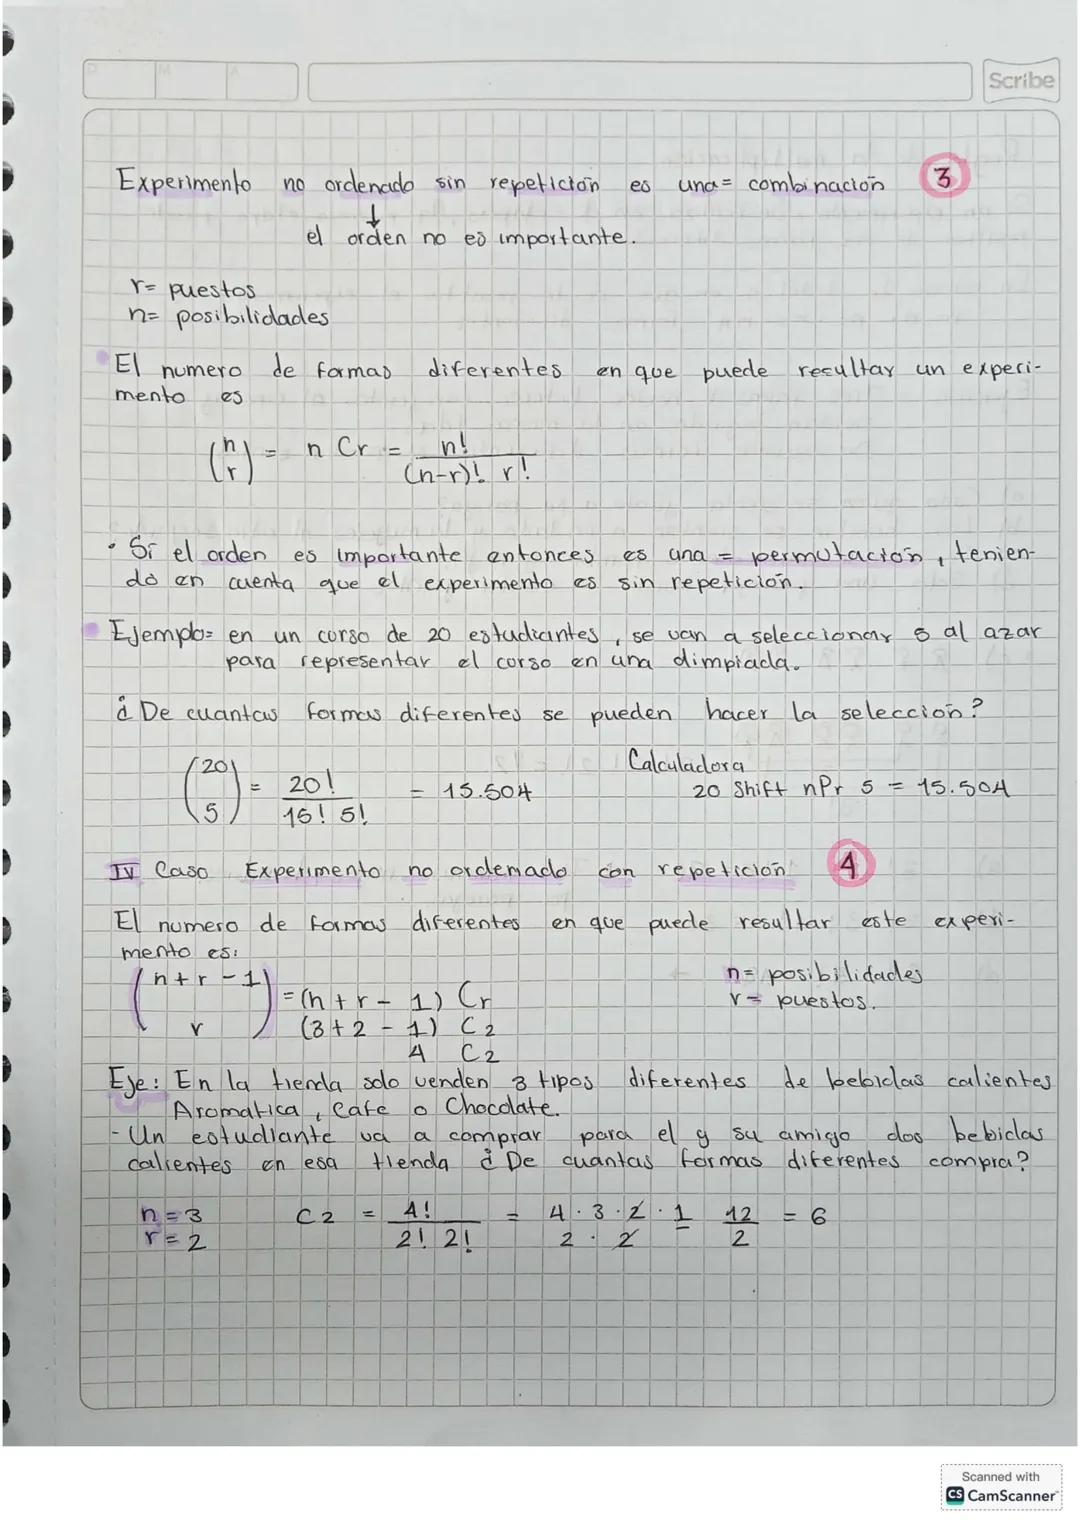 D M A
Scribe
Experimento no ordenado sin repetición es una = combinación 3
↓
el orden no es importante.
r= puestos
n= posibilidades
El numero de formas diferentes en que puede resultar un experi-
mento es
(n r) = n Cr = n! / (n-r)! r!
• Si el orden es importante entonces es una = permutación, tenien-
do en cuenta que el experimento es sin repetición.
Ejemplo= en un curso de 20 estudiantes, se van a seleccionar 5 al azar
para representar el curso en una olimpiada.
¿De cuantas formas diferentes se pueden hacer la selección?
Calculadora
(20 5) = 20! / 15! 5! = 15.504 20 Shift nPr 5 = 15.504
IV Caso Experimento no ordenado con repetición 4
El numero de formas diferentes en que puede resultar este experi-
mento es:
(n+r-1 r) = (n+r-1) Cr n= posibilidades
(3+2-1) C2 r= puestos.
4 C2
Eje: En la tienda solo venden 3 tipos diferentes de bebidas calientes
Aromatica, Cafe o Chocolate.
- Un estudiante va a comprar para el y su amigo dos bebidas
calientes en esa tienda ¿De cuantas formas diferentes compra?
n=3 C2 = 4! / 2! 2! = 4·3·2·1 / 2·2 12 / 2 = 6
r=2
Scanned with
CS CamScanner